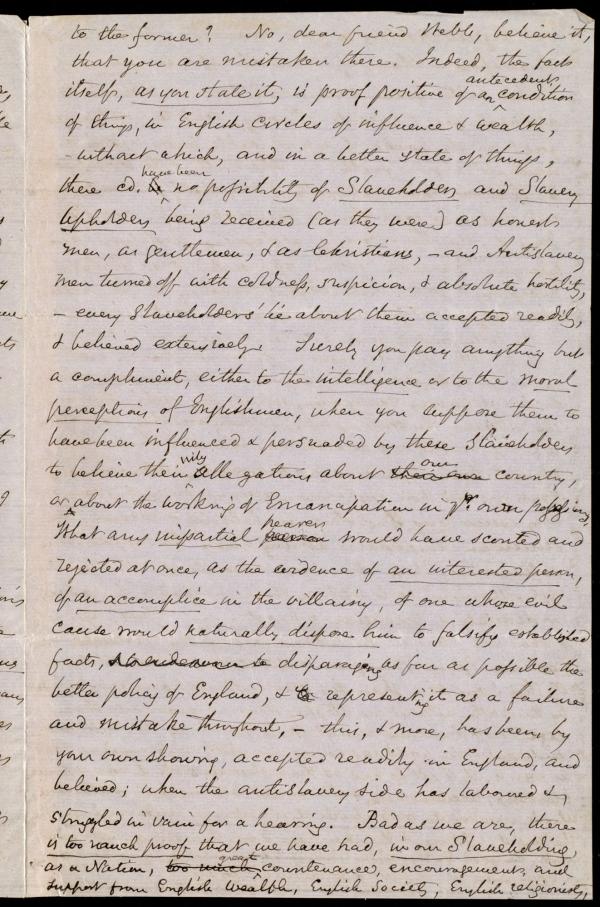 to the former? No, dear friend Webb, believe it,
that you are mistaken there. Indeed, the fact
itself, as you state it, is proof positive of an antecedent condition
of things, in English circles of influence & wealth,
- without which, and in a better state of things,
there cd. have been no possibility of Slaveholders and Slavery
Upholders being received (as they were) as honest
men, as gentlemen, & as Christians, - and Antislavery
men turned off with coldness, suspicion, & absolute hostility,
- every Slaveholders' lie about them accepted readily,
& believed extensively. Surely you pay anything but
a compliment, either to the intelligence or to the moral
perceptions of Englishmen, when you suppose them to
have been influenced & persuaded by these Slaveholders
to believe their wily allegations about our country,
or about the working of Emancipation in yr. own
What any impartial hearer would have scouted and
rejected at once, as the evidence of an interested person,
of an accomplice in the villainy, of one whose evil
cause would naturally dispose him to falsify established
facts, disparaging as far as possible the
better policy of England, & representing it as a failure
and mistake throughout, - this, & more, has been, by
your own showing, accepted readily in England, and
believed; when the antislavery side has laboured &
struggled in vain for a hearing. Bad as we are, there
is too much proof that we have had, in our Slaveholding,
as a Nation, great countenance, encouragement, and
support from English Wealth, English Society, English religionists,